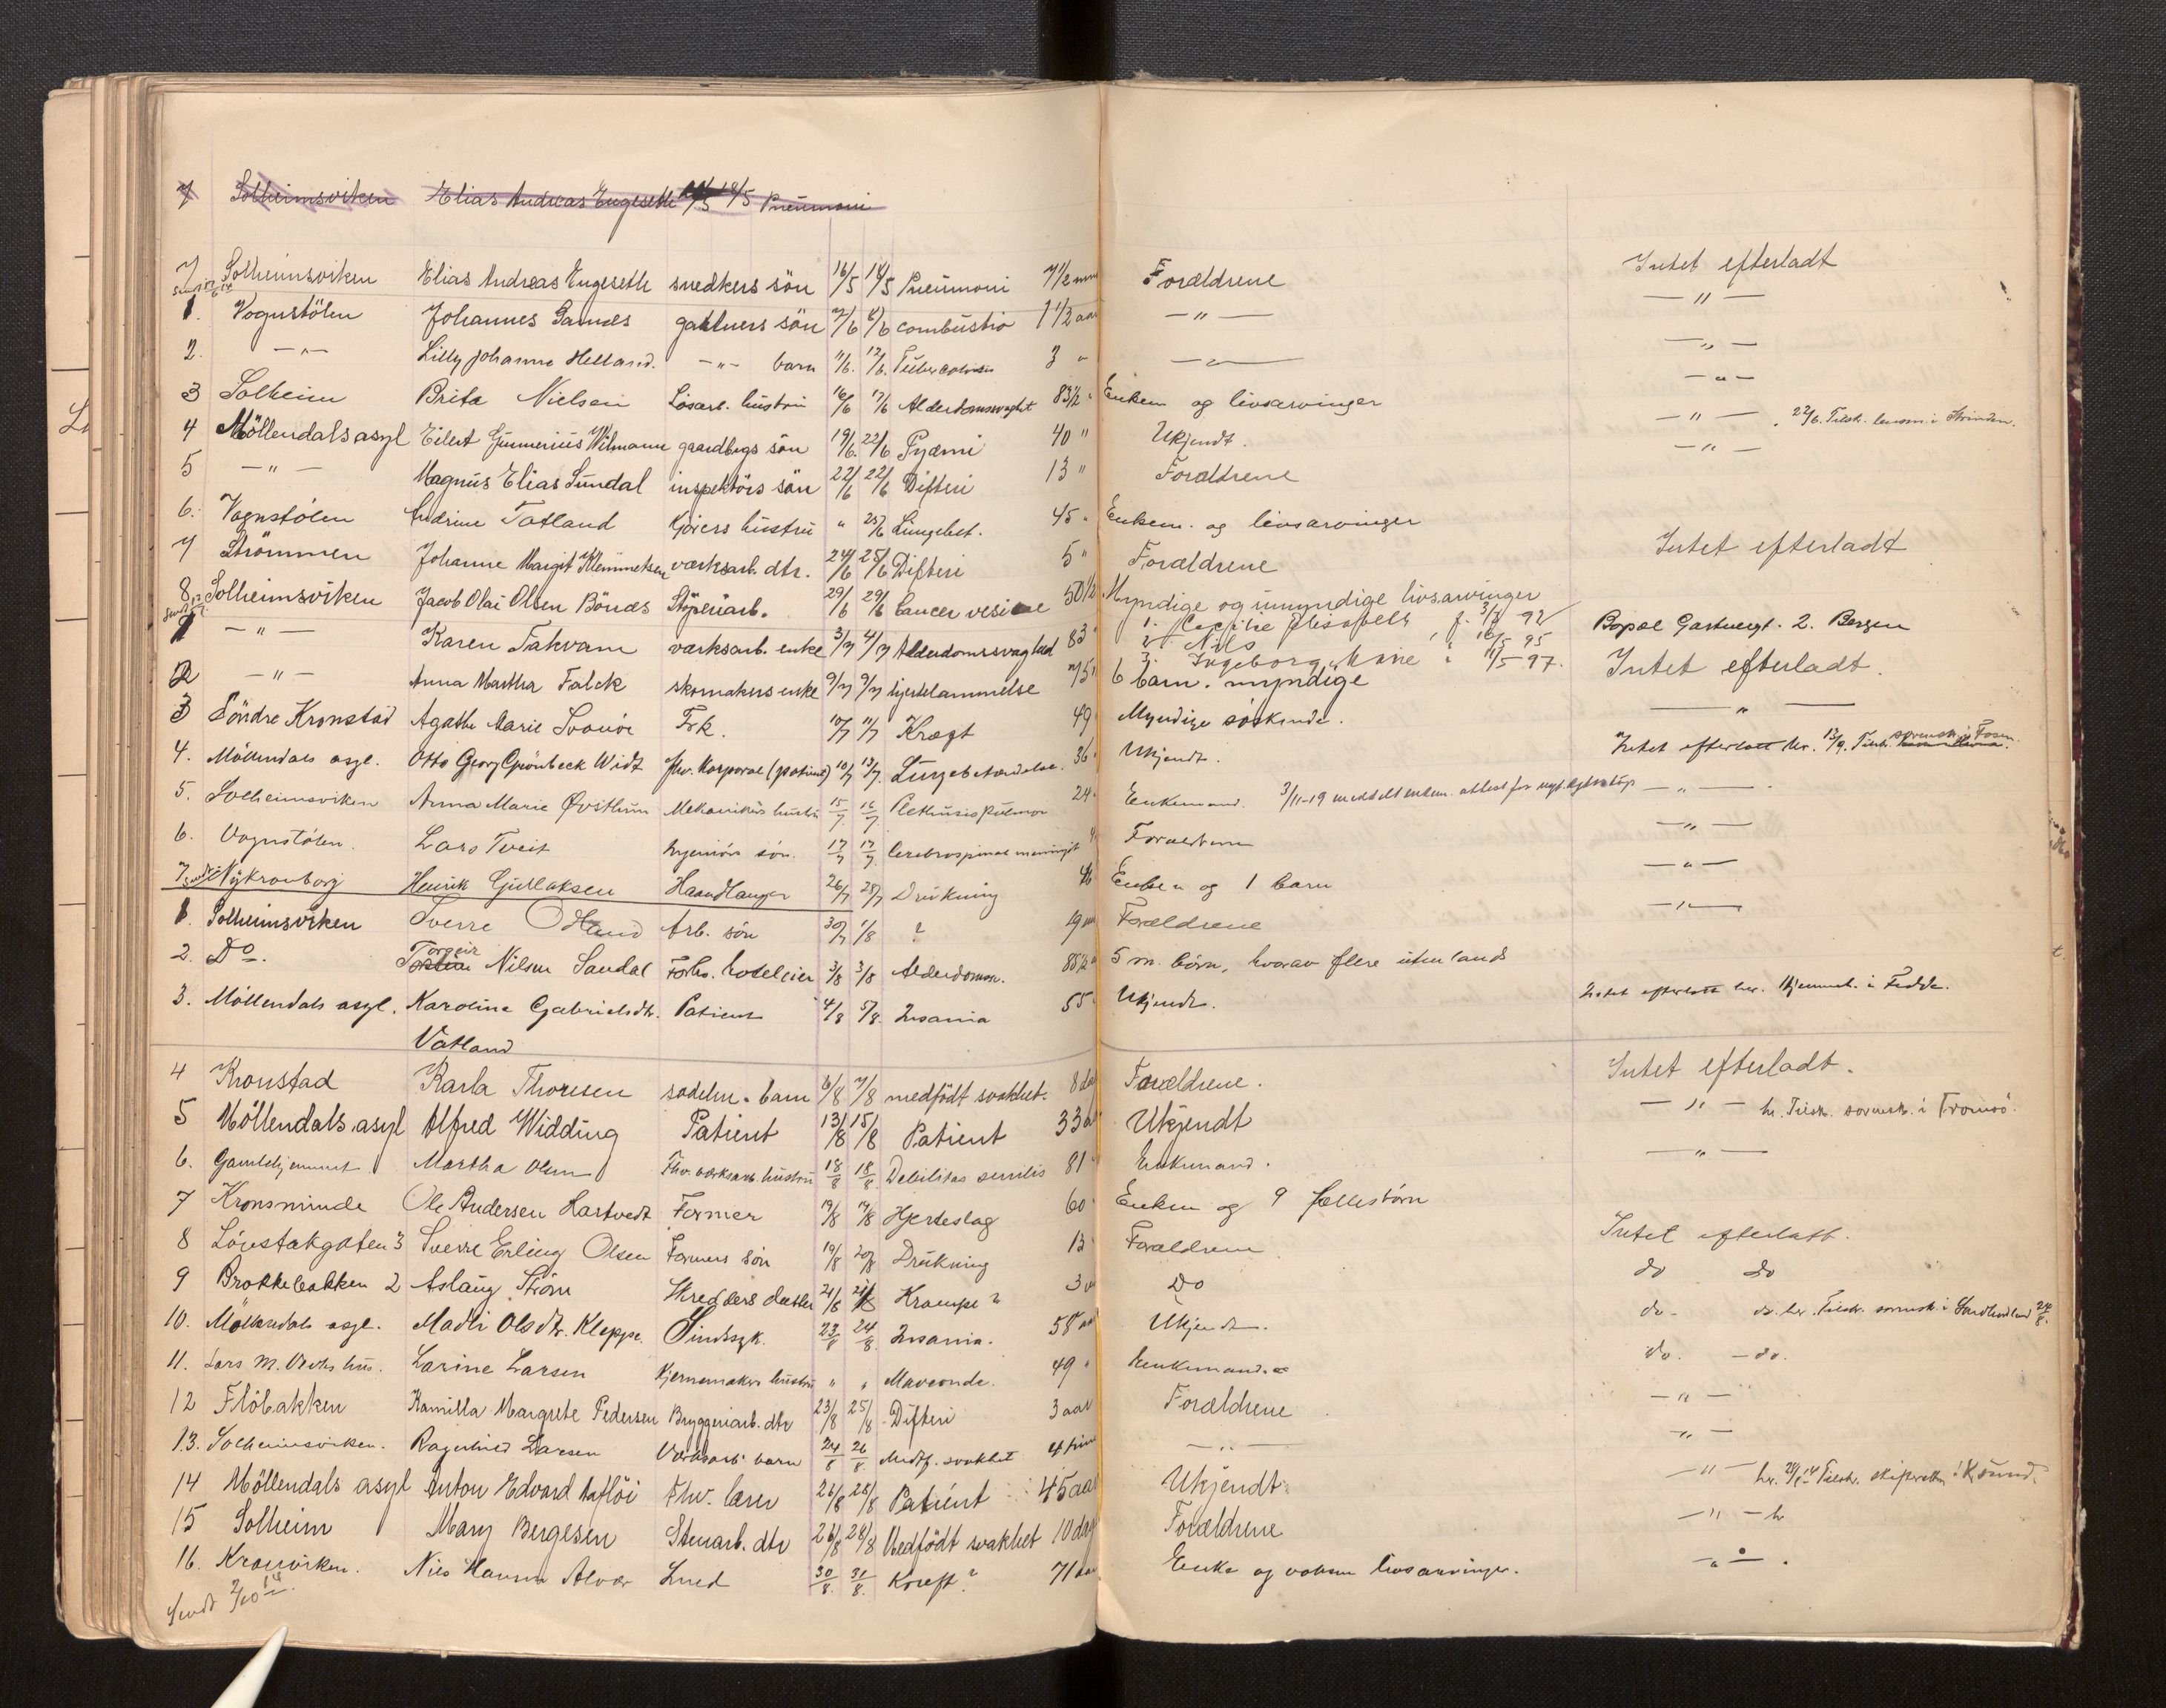 7 Solheimsviken Elias Andreas Engeseth 18/5 Pneumoni
7 Solheimsviken Elias Andreas Engeseth snedkers sön 16/5 18/5 Pneumoni 7 1/2 mnd Forældrene Intet efterladt
1. Vognstölen Johannes Samdes gartners sön 7/6 8/6 combustio 1 1/2 aar — " — — " —
2. — " — Lilly Johanne Helland. — " — barn 11/6. 12/6. Tuberculosis 3 " — " — — " —
3 Solheim Brita Nielsen Lösarb. hustru 16/6 17/6 Alderdomssvaghet 83 1/2 " Enkem og livsarvinger — " —
4 Möllendals asyl Eilert Gunnerius Wilmann gaardbrgs sön 19/6. 22/6 Pyæmi 40 " Ukjendt. — " — . 22/6. Tilsk. lensm. i Strinden.
5 — " — Magnus Elias Sundal inspektörs sön 22/6 22/6 Difteri 13 " Forældrene — " —
6. Vognstölen Andrine Totland Kjörers hustru " 25/6 Lungebet. 45 " Enkem. og livsarvinger
7 Strömmen Johanne Margit Klemmetsen værksarb. dtr. 24/6 25/6 Difteri 5 " Forældrene Intet efterladt
8. Solheimsviken Jacob Olai Olsen Bönæs Stöperiarb. 29/6 29/6 Cancer vesicae 50 1/2 Myndige og umyndige livsarvinger
1. Cecilie Elisabeth f. 3/8 92
1 — " — Karen Takvam værksarb. enke 3/7 4/7 Alderdomssvaghed 83 " 2. Nils " 16/5 95 Bopæl Gartnergt. 2. Bergen
3. Ingeborg Marie " 11/5 - 97.
2 — " — Anna Martha Falck skomakers enke 9/7 9/7 hjertelammelse 75 " 6 barn. myndige Intet efterladt.
3 Söndre Kronstad Agathe Marie Svanöe Frk. 10/7 11/7 Kræft 49 Myndige söskende. — " —
4. Möllendals asyl. Otto Georg Grönbeck Widt fhv. Korporal (patient) 10/7 13/7. Lungebetændelse. 36 " Ukjendt. Intet efterlatt her. 13/9. Tilsk. sorensk. i Fosen.
5. Solheimsviken Anna Marie Østhun Mekanikers hustru 15/7 16/7. Plethusis pulmon 24 " Enkemand. 3/11-19 meddelt enkem. attest for — " —
6. Vognstölen. Lars Tveit Ingeniörs sön. 17/7 17/7. Cerebrospinal meningit Forældrene — " —
7. Nykronborg Henrik Gullaksen Haandlanger 26/7 28/7 Drukning 46 Enken og 1 barn — " —
1. Solheimsviken Sverre Odland Arb. sön 30/7 1/8 ? 19 mnd Forældrene — " —
2. Do. Torgeir Nilsen Sandal Forhv. hoteleier 3/8 3/8 Alderdomssv. 85 1/2 5 m. börn, hvorav flere utenlands
3. Möllendals asyl. Karoline Gabrielsdtr. Patient 4/8 5/8. Insania 55 " Ukjendt. Intet efterlatt her. Hjemmeh. i Fedde.
Vatland
4 Kronstad Karla Thorsen sadelm. barn 6/8 7/8 medfödt svakhet. 8 dag Forældrene. Intet efterladt.
5 Möllendals asyl Alfred Widding Patient 13/8 15/8 Patient 33 aar Ukjendt — " — hr. Tilsk. sorensk. i Tromsö.
6. Gamlehjemmet Martha Olsen Fhv. værksarb. hustru 18/8 18/8. Debilitas senilis 81 " Enkemand. — " —
7 Kronsminde Ole Andersen Hartvedt Former 19/8 19/8 Hjerteslag 60 " Enken og 9 fællesbörn
8 Lövstakgaten 3 Sverre Erling Olsen Formers sön 19/8 20/8 Drukning 13 " Forældrene Intet efterlatt.
9 Brattebakken 2 Aslaug Ström Skredders datter 21/8 21/8 Krampe ? 3 Do do do
10. Möllendals asyl. Madli Olsdtr. Kleppe. Sindssyk. 23/8 24/8. Insania. 58 aar Ukjendt. do. do. her. Tilsk. sorensk. i Søndhordland 24/8.
11. Lars M. hus. Larine Larsen Kjernemakers hustru " " Maveonde. 49 " Enkemand. do. — do.
12 Flöbakken Kamilla Margrete Pedersen Bryggeriarb. dtr 23/8 25/8 Difteri 3 aar Forældrene — " —
13. Solheimsviken. Ragnhild Larsen Værksarb. barn 24/8 26/8. Medf. svakhet 4 tim — " — — " —
14 Möllendals asyl Anton Edvard Aaflöi Fhv. lærer 26/8 28/8 Patient 45 aar Ukjendt — " — hr. 28/8 14 Tilsk. skifteretten i Ksund.
15 Solheim Mary Bergesen Stenarb. dtr 26/8 28/8 Medfödt svakhet 10 dag Forældrene — " — "
16. Kronviken. Nils Hansen Alvær Smed 30/8. 31/8. Kreft ? 71 aar Enke og voksne livsarvinger. — " — .
Sendt 2/10 14.